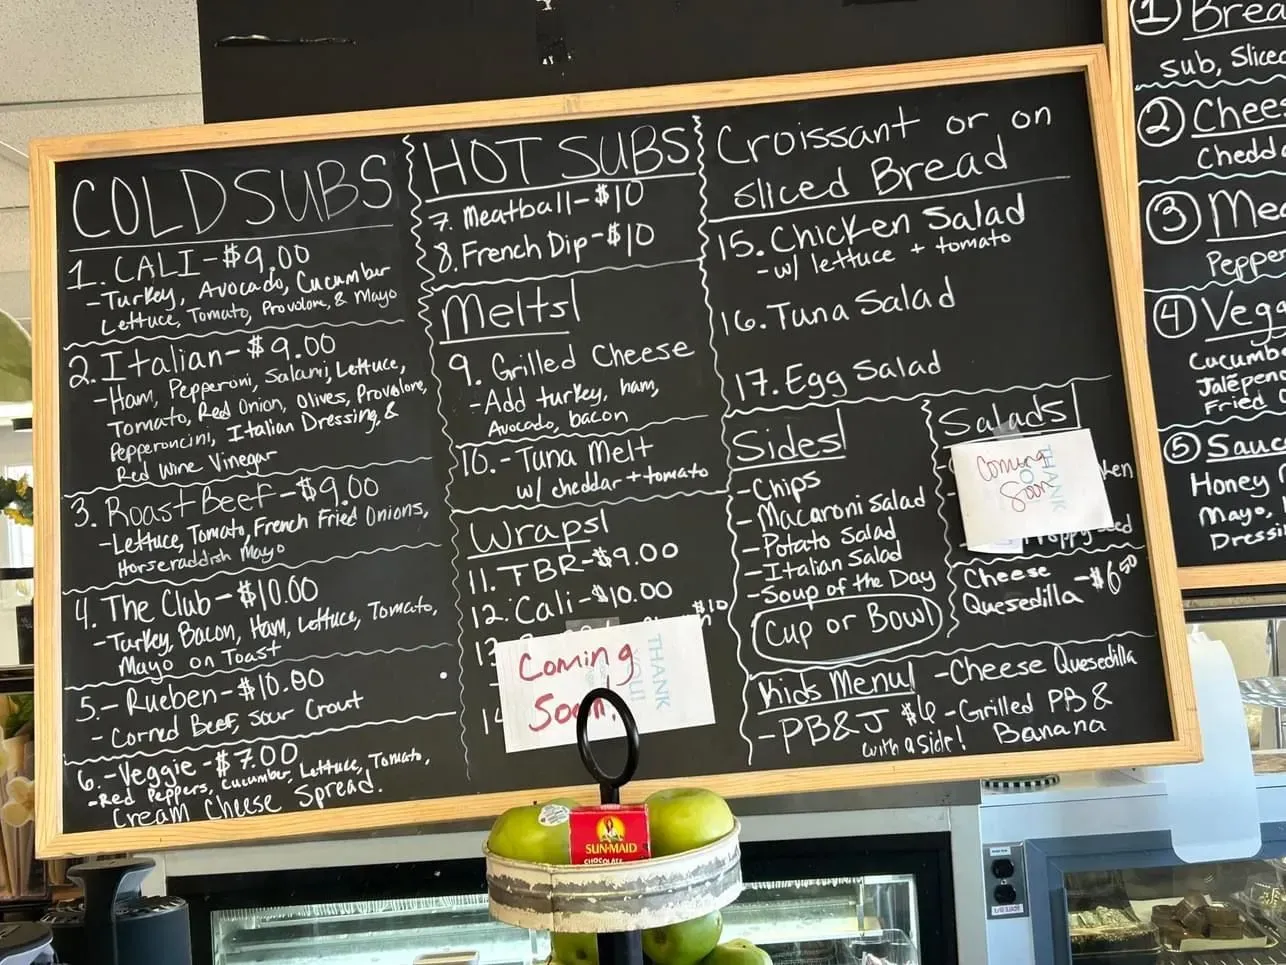 COLD SUBS
1. CALI - $9.00
- Turkey, Avocado, Cucumber
Lettuce, Tomato, Provolone, & Mayo
2. Italian - $9.00
- Ham, Pepperoni, Salami, Lettuce,
Tomato, Red Onion, Olives, Provolone,
Pepperoncini, Italian Dressing, &
Red Wine Vinegar
3. Roast Beef - $9.00
- Lettuce, Tomato, French Fried Onions,
Horseraddish Mayo
4. The Club - $10.00
- Turkey, Bacon, Ham, Lettuce, Tomato,
Mayo on Toast
5. - Rueben - $10.00
- Corned Beef, Sour Crout
6. - Veggie - $7.00
- Red Peppers, Cucumber, Lettuce, Tomato,
Cream Cheese Spread.
HOT SUBS
7. Meatball - $10
8. French Dip - $10
Melts
9. Grilled Cheese
- Add turkey, ham,
Avocado, bacon
10. - Tuna Melt
w/ cheddar + tomato
Wraps
11. TBR - $9.00
12. Cali - $10.00
13
$10
Coming
Soon!
THANK
YOU!
14
Croissant or on
Sliced Bread
15. Chicken Salad
- w/ lettuce + tomato
16. Tuna Salad
17. Egg Salad
Sides
- Chips
- Macaroni Salad
- Potato Salad
- Italian Salad
- Soup of the Day
Cup or Bowl
Salads
Coming
Soon
THANK
YOU
Cheese
Quesedilla - $6.50
Kids Menu
- PB&J $6
with a side!
- Cheese Quesedilla
- Grilled PB &
Banana
1
Sub,
2
3
4
Jalepeno
Fried
5
Honey
Mayo,
SUN-MAID
CHOCOLATE